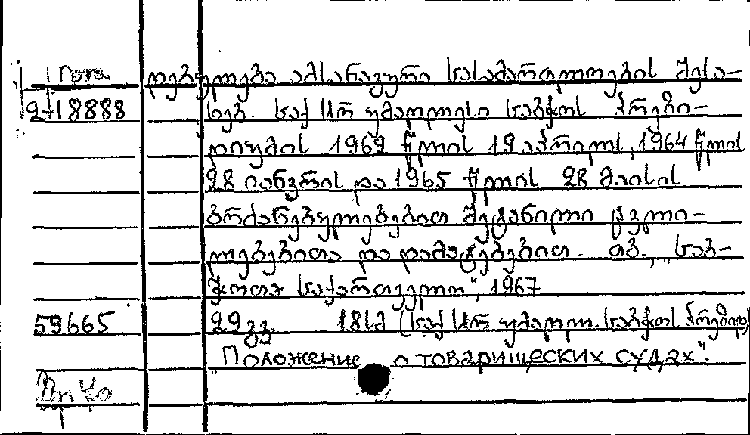 დებულება ამხანაგური სასამართლოების შესა-
2-18888 ხებ. საქ სსრ უმაღლესი საბჭოს პრეზი-
დიუმის 1962 წლის 19 აპრილის, 1964 წლის
28 იანვრის და 1965 წლის 28 მაისის
ბრძანებულებებით შეტანილი ცვლი-
ლებებითა და დამატებებით. თბ., „საბ-
ჭოთა საქართველო", 1967
59665 22 გვ. 18სმ (საქ სსრ უმაღლ. საბჭოს პრეზიდ)
"Положение о товарищеских судах".